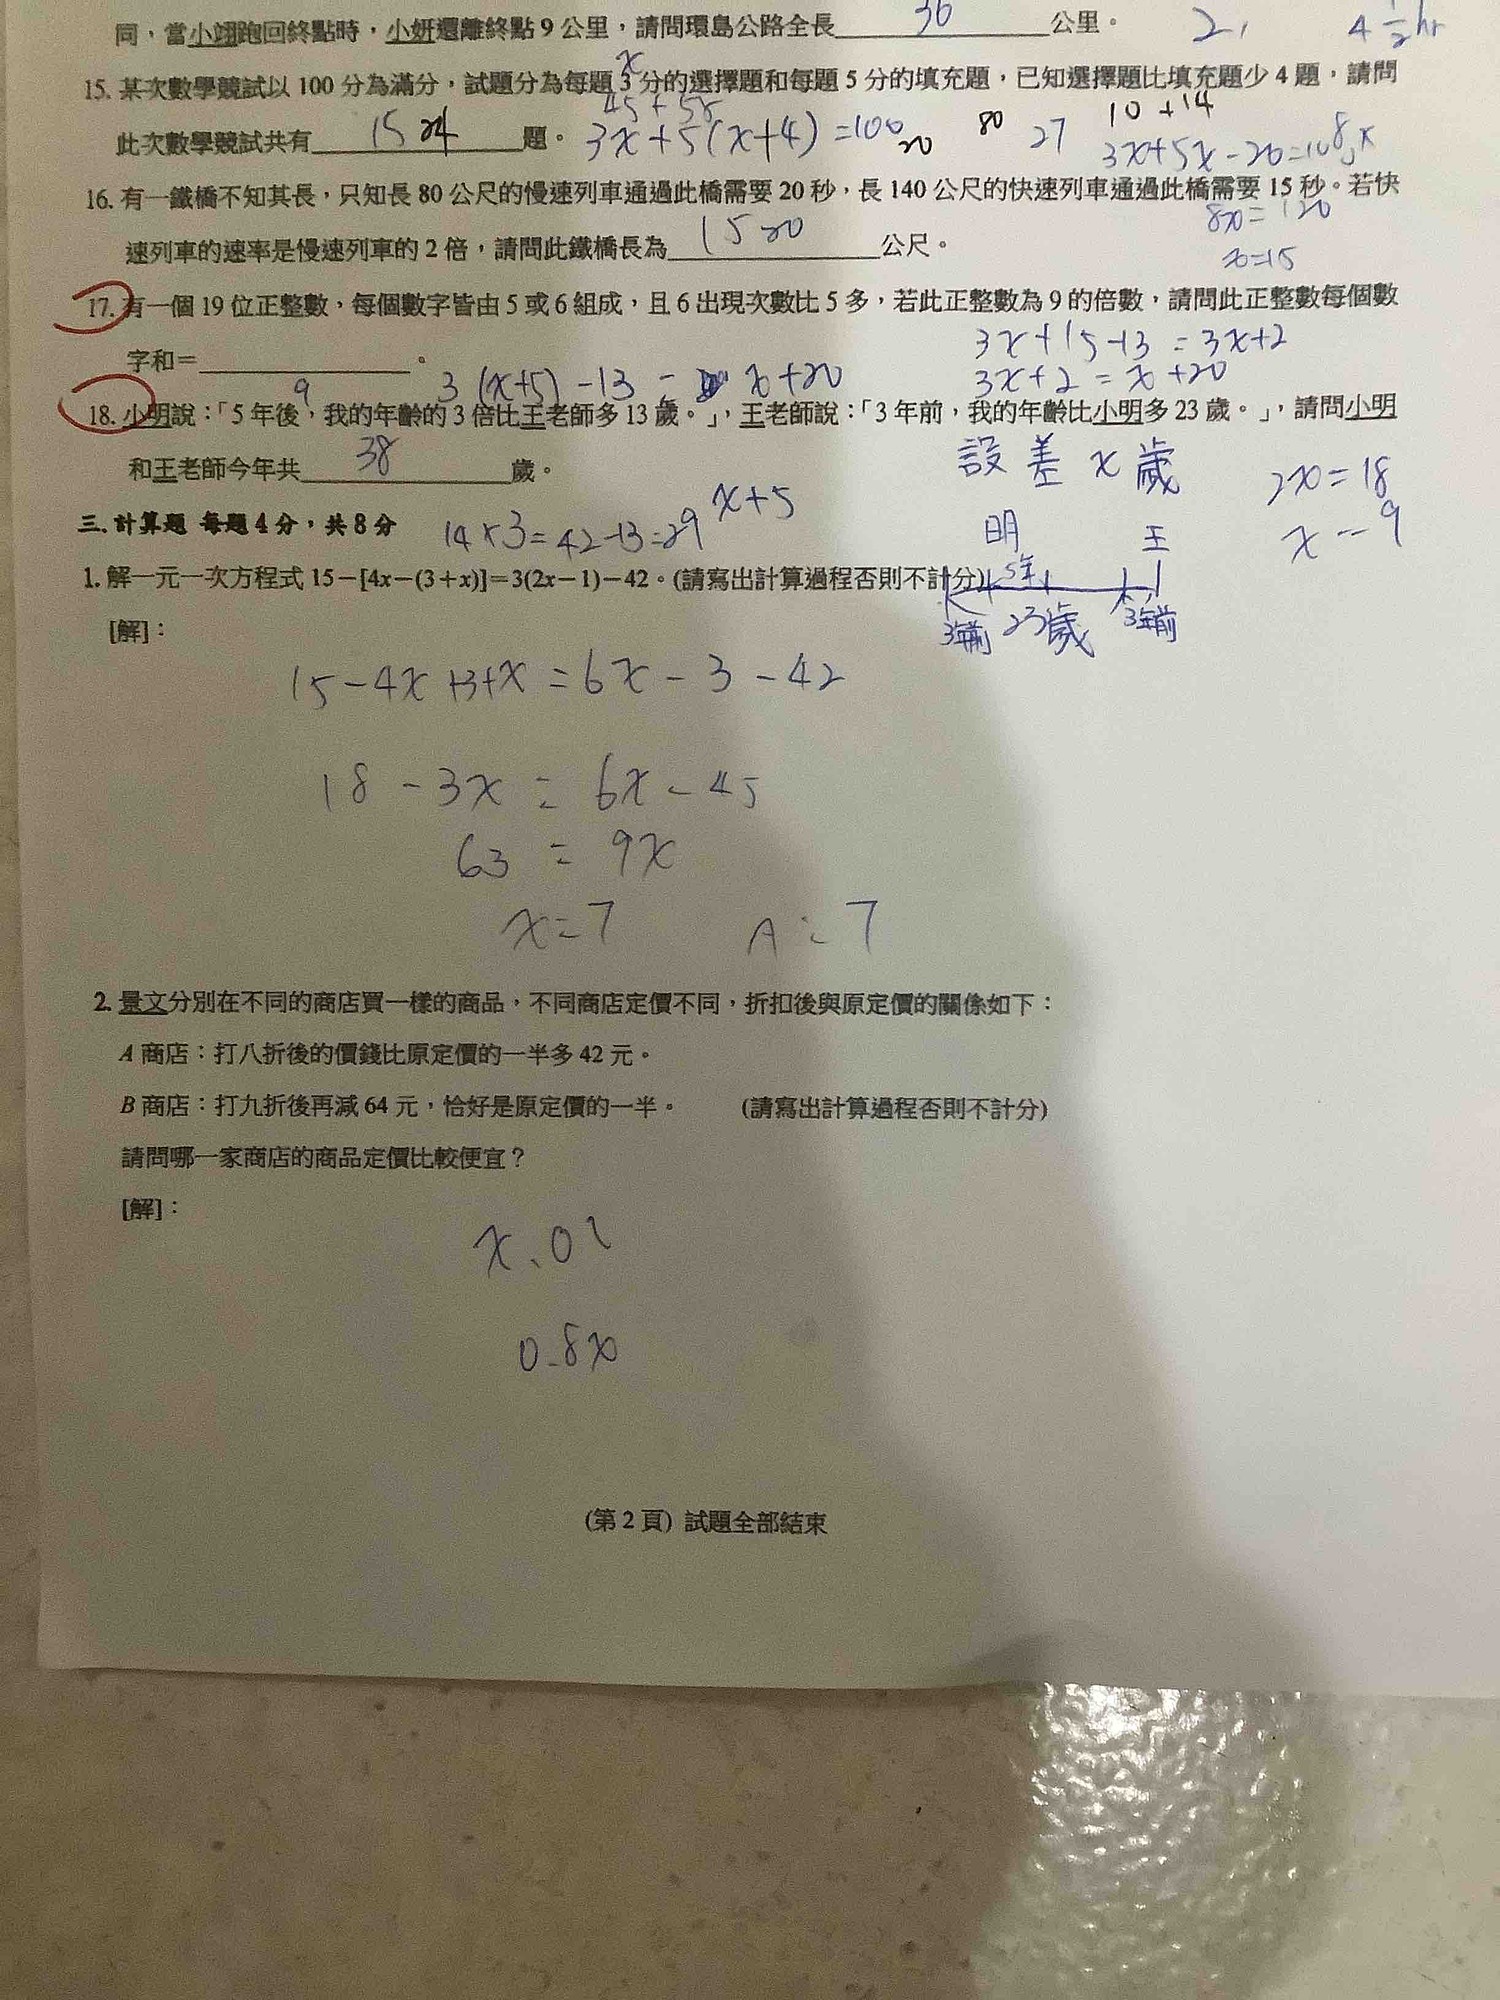 同，當小翊跑回終點時，小妍還離終點 9 公里，請問環島公路全長 36 公里。 2, 4 1/2 hr
15. 某次數學競試以 100 分為滿分，試題分為每題 3 分的選擇題和每題 5 分的填充題，已知選擇題比填充題少 4 題，請問
x
45+5x 10+14
此次數學競試共有 24 題。 3x+5(x+4)=100 20 80 27 3x+5x-20=100
16. 有一鐵橋不知其長，只知長 80 公尺的慢速列車通過此橋需要 20 秒，長 140 公尺的快速列車通過此橋需要 15 秒。若快
8x=120
速列車的速率是慢速列車的 2 倍，請問此鐵橋長為 公尺。
x=15
17. 有一個 19 位正整數，每個數字皆由 5 或 6 組成，且 6 出現次數比 5 多，若此正整數為 9 的倍數，請問此正整數每個數
3x+15-13=3x+2
字和= 。
9 3(x+5)-13= x+20 3x+2=x+20
18. 小明說：「5 年後，我的年齡的 3 倍比王老師多 13 歲。」，王老師說：「3 年前，我的年齡比小明多 23 歲。」，請問小明
和王老師今年共 38 歲。 設差x歲 2x=18
三. 計算題 每題 4 分，共 8 分 14×3=42-13=29 x+5 明 王 x=9
1. 解一元一次方程式 15−[4x−(3+x)]=3(2x−1)−42。(請寫出計算過程否則不計分) 5年
[解]： 3年前 23歲 3年前
15-4x+3+x=6x-3-42
18-3x=6x-45
63=9x
x=7 A:7
2. 景文分別在不同的商店買一樣的商品，不同商店定價不同，折扣後與原定價的關係如下：
A 商店：打八折後的價錢比原定價的一半多 42 元。
B 商店：打九折後再減 64 元，恰好是原定價的一半。 (請寫出計算過程否則不計分)
請問哪一家商店的商品定價比較便宜？
[解]：
0.8x
(第 2 頁) 試題全部結束